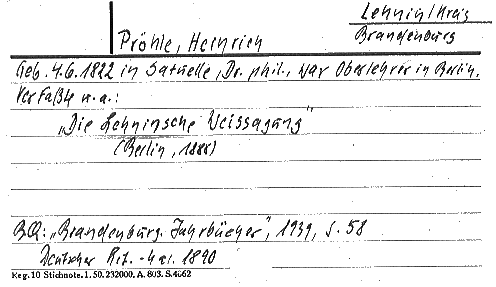 Lehnin/Kreis
Brandenburg
Pröhle, Heinrich
Geb. 4.6.1822 in Satuelle, Dr. phil., war Oberlehrer in Berlin.
Verfaßte u.a.:
„Die Lehninsche Weissagung"
(Berlin, 1888)
BQ: „Brandenburg. Jahrbücher", 1939, S. 58
Deutscher Lit. 1890
Reg. 10 Stichnote. 1. 50. 232000. A. 803. S. 4662